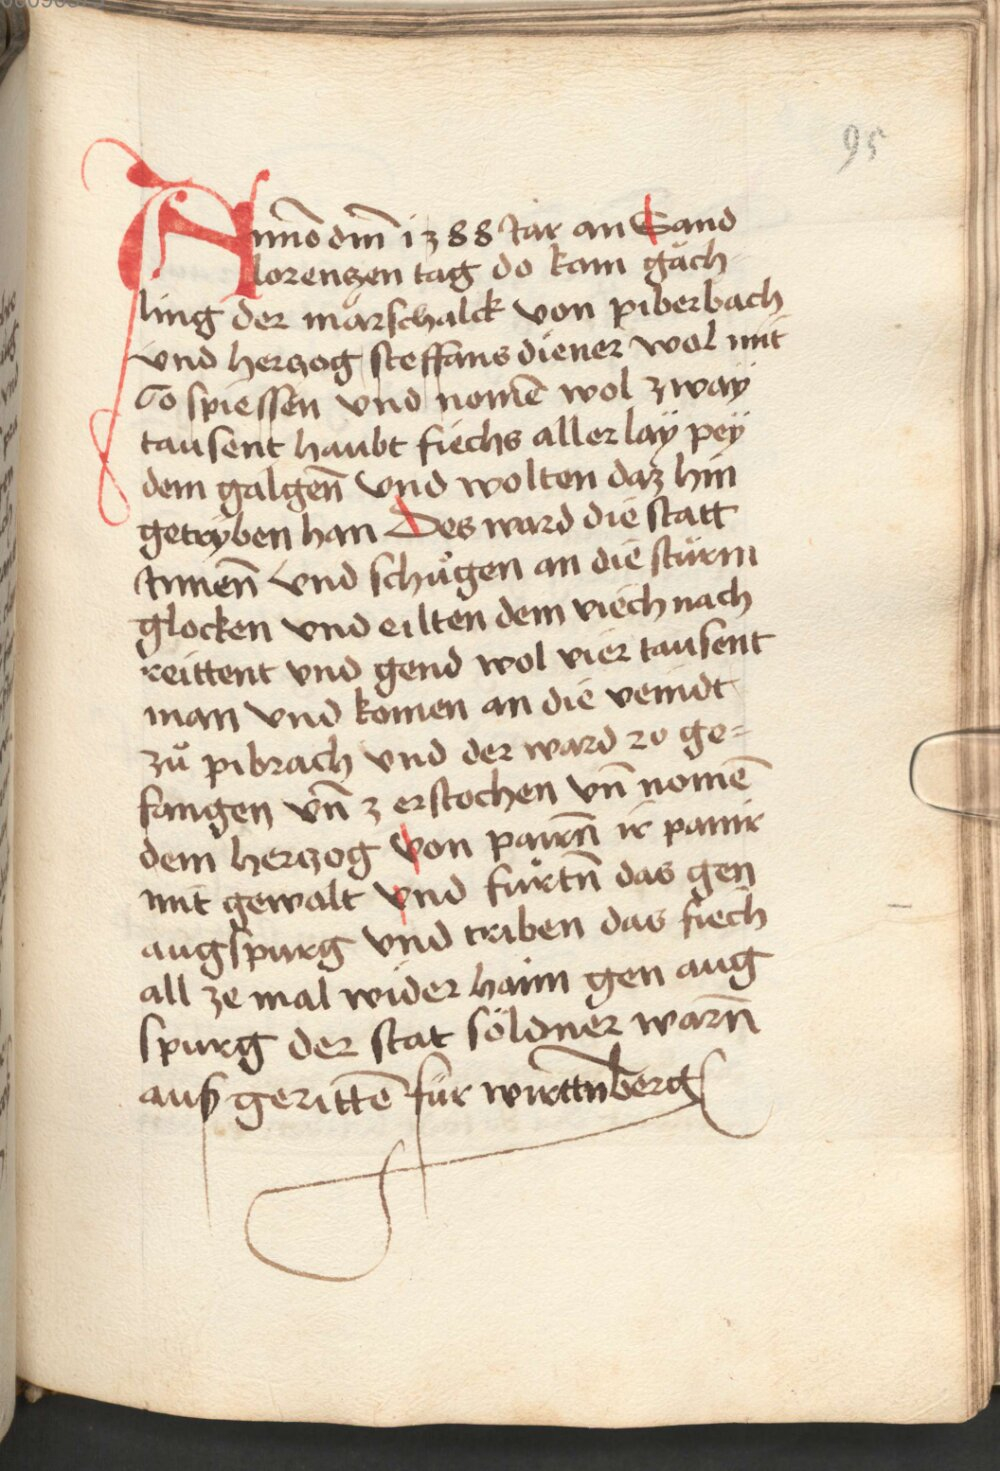 95
Anno dm̄ 1388 Jar an Sand
lorenczen tag do kam gäch
ling der marschalck von piberbach
vnd herczog steffans diener wol mit
60 spiessen vnd nomē wol zway
tausent haubt fiechs aller lay pey
dem galgen̄ vnd wolten daz hin
getryben han Des ward die statt
Jnnen̄ vnd schůgen an die sturm
glocken vnd eilten dem viech nach
reittent vnd gend wol vier tausent
man vnd komen an die veindt
zů pibrach vnd der ward 20 ge=
fangen vn̄ 3 erstochen vn̄ nomē
dem herczog von pairn̄ ir panir
mit gewalt vnd fůrtn̄ das gen
augspurg vnd triben das fiech
all ze mal wider haim gen aug
spurg der stat söldner warn̄
auß gerittē für wirttnberg